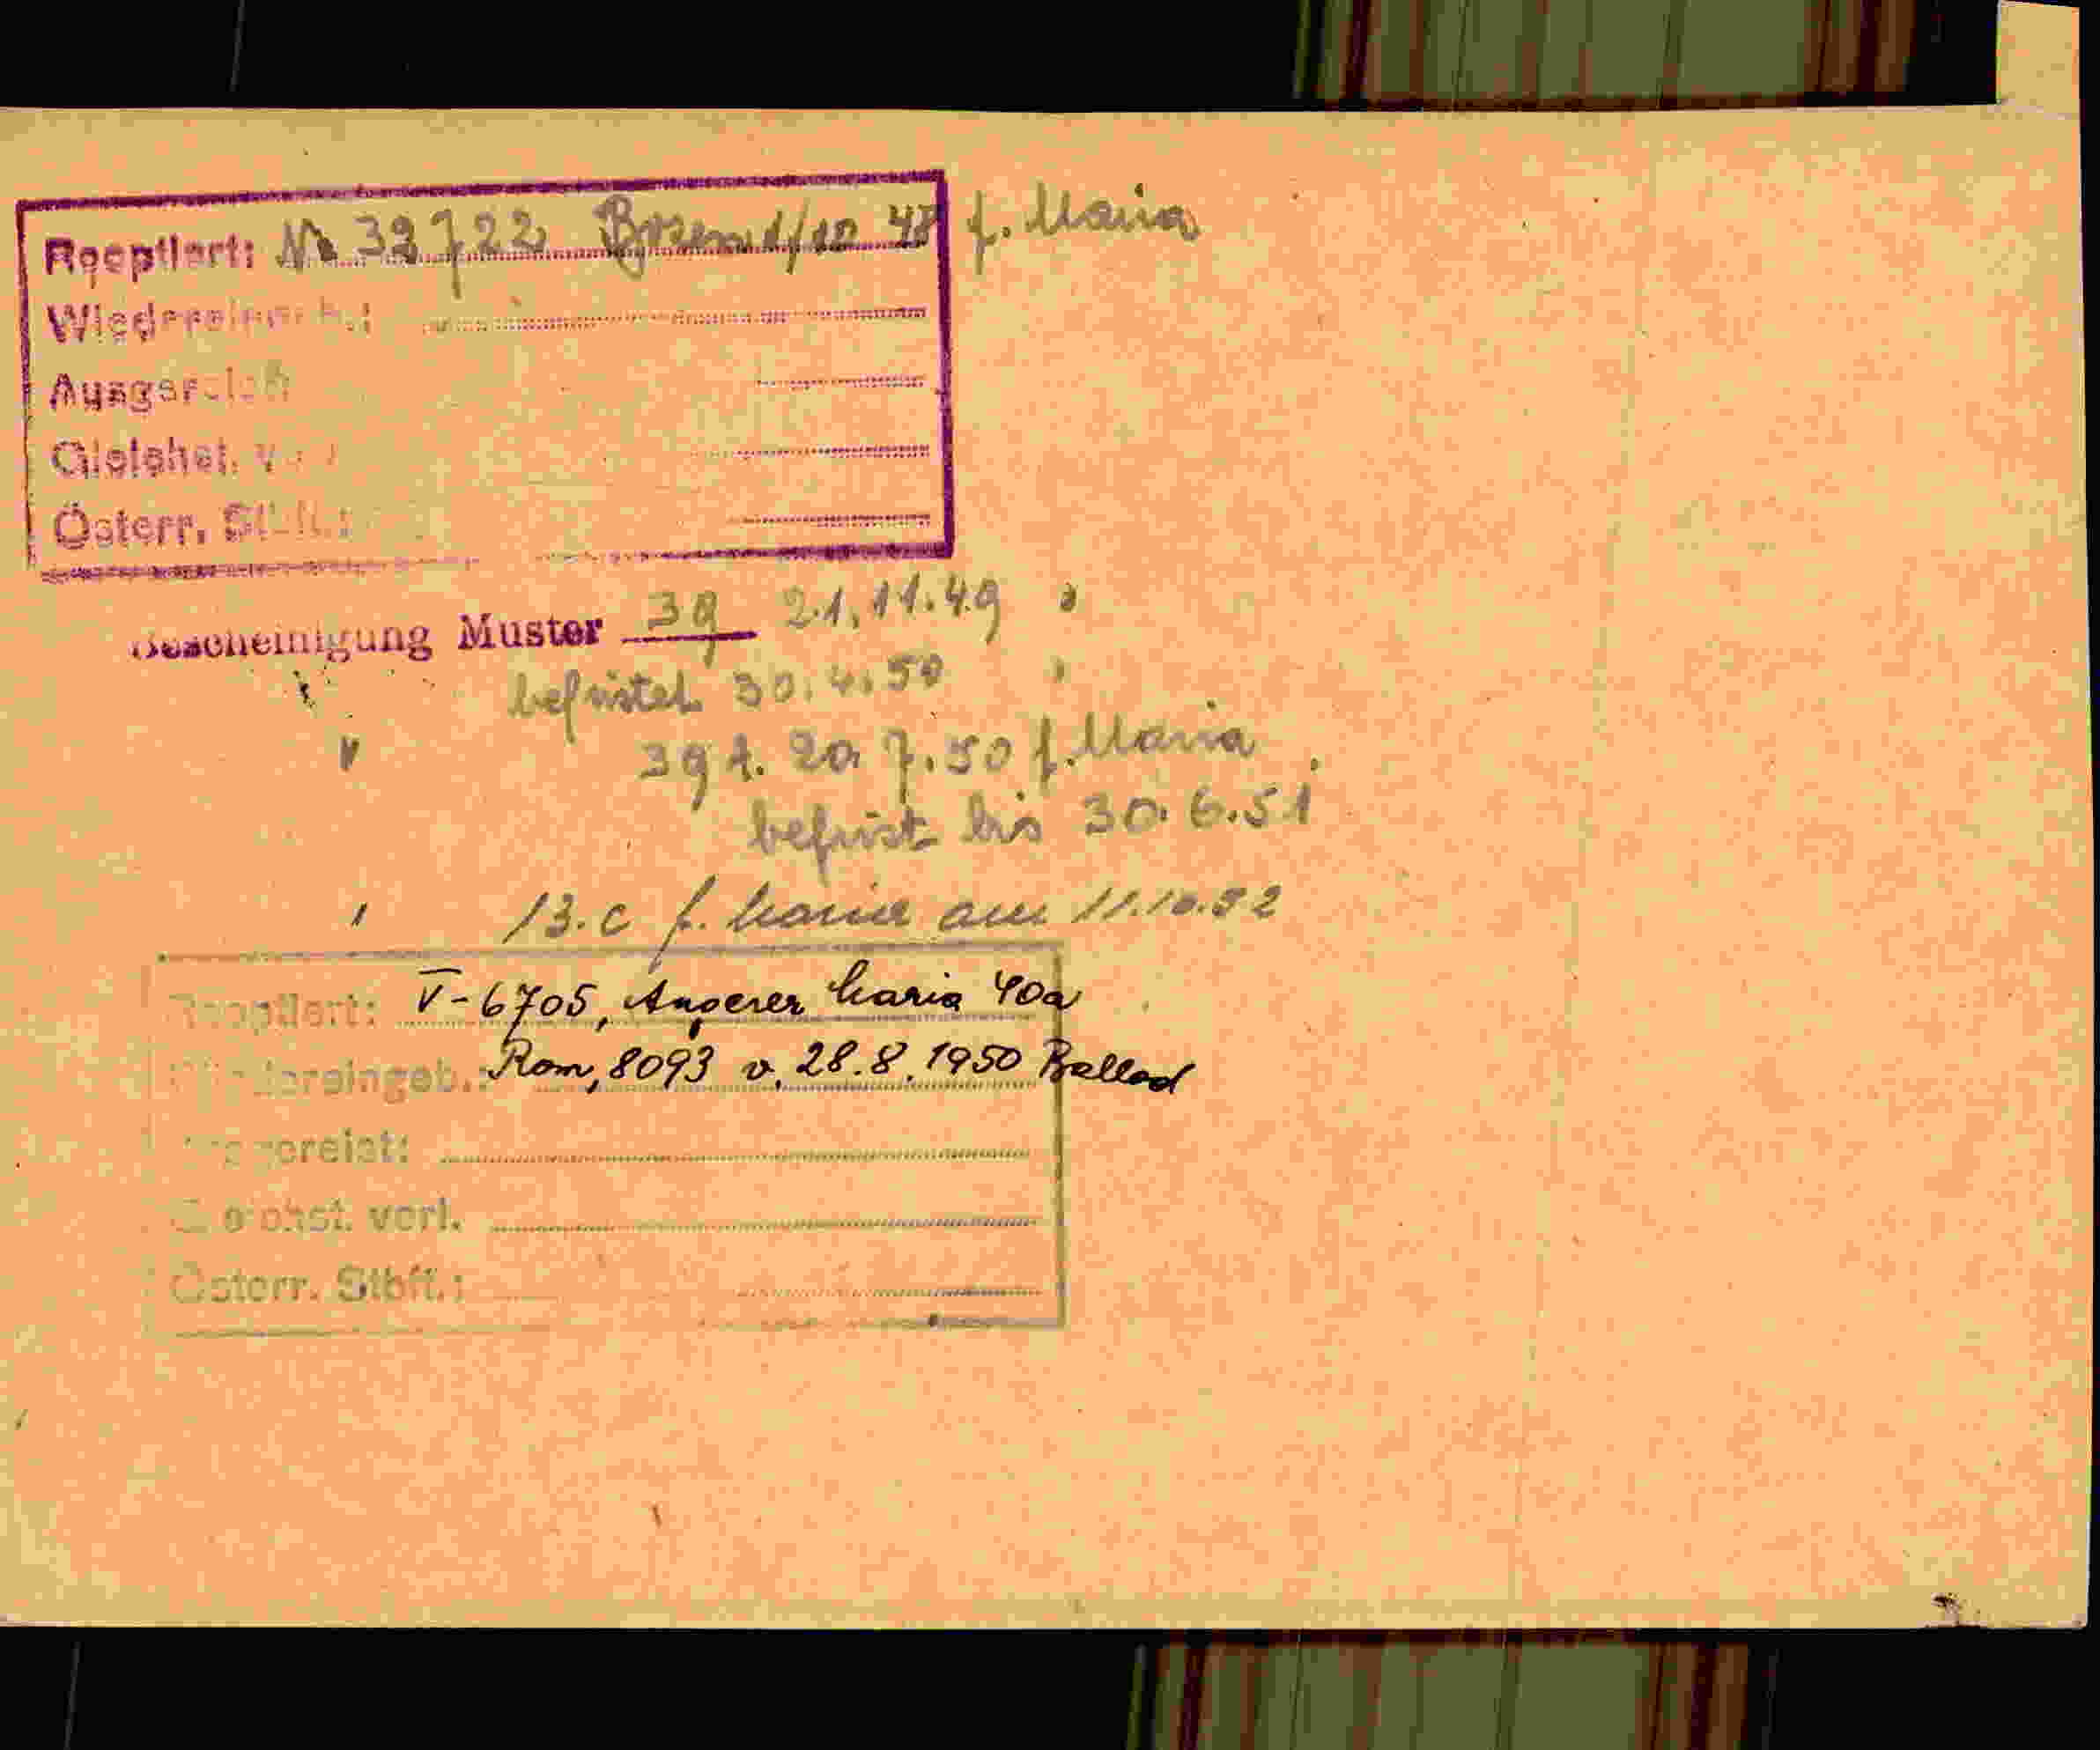 Reoptiert: Nr 32722 Bozen 1/10 48 f. Maria
Wiedereingeb.:
Ausgereist
Gleichst. verl.
Österr. Stbft.:
Bescheinigung Muster 39 21.11.49 "
befristet 30.4.50 "
" 39 t. 20. 7.50 f. Maria
befrist bis 30.6.51
" 13.c f. Maria am 11.10.52
Reoptiert: V-6705, Angerer Maria 40a
Wiedereingeb.: Rom, 8093 v. 28.8.1950 Ballad
Ausgereist:
Gleichst. verl.
Österr. Stbft.: